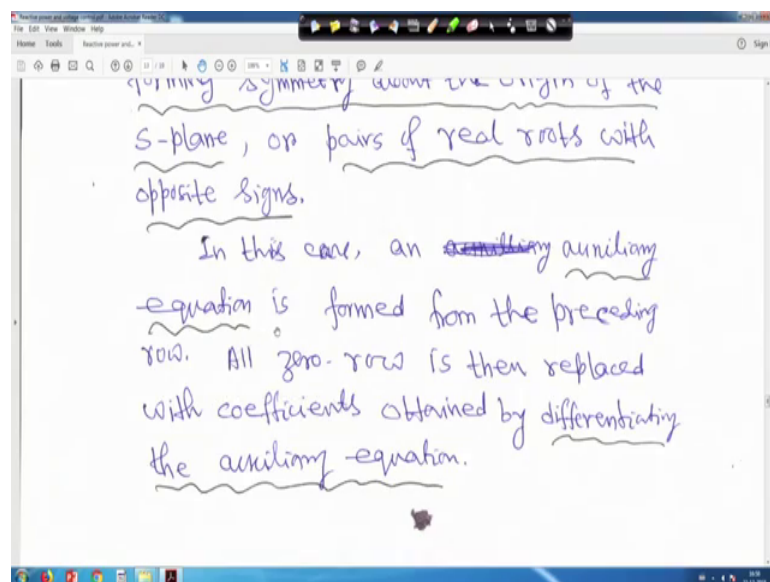 Reactive power and voltage control.pdf - Adobe Acrobat Reader DC
File Edit View Window Help
Home Tools Reactive power and... ×
Sign
forming symmetry about the origin of the
S-plane, or pairs of real roots with
opposite signs.
In this case, an auxiliary
equation is formed from the preceding
row. All zero-row is then replaced
with coefficients obtained by differentiating
the auxiliary equation.